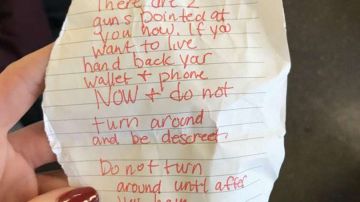 There are 2
guns pointed at
you now. If you
want to live
hand back your
wallet + phone
NOW + do not
turn around
and be descreet.
Do not turn
around until after
you have